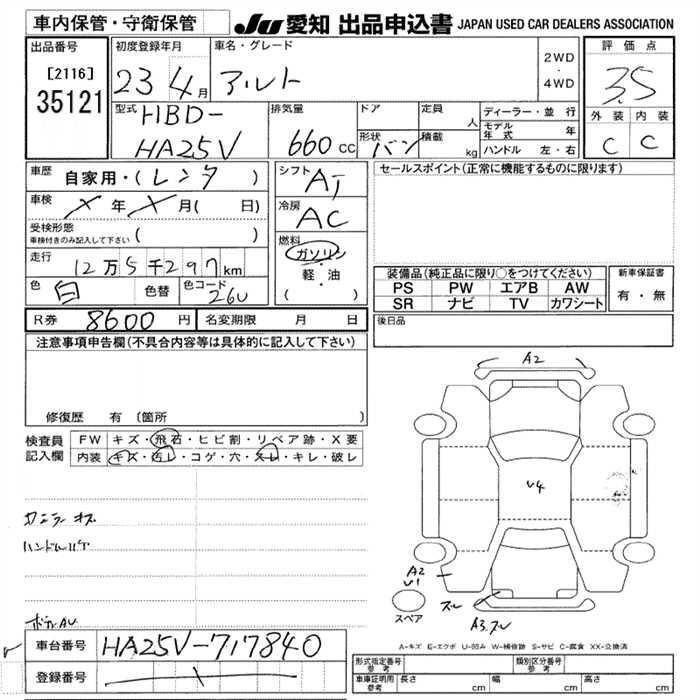 車内保管・守衛保管
JU 愛知 出品申込書 JAPAN USED CAR DEALERS ASSOCIATION
出品番号
[2116]
35121
初度登録年月
23 4月
車名・グレード
アルト
2WD
・
4WD
評価点
3.5
外装 内装
C C
型式
HBD-
HA25V
排気量
660 cc
ドア
形状
バン
定員
人
積載
kg
ディーラー・並行
モデル年式 年
ハンドル 左・右
車歴
自家用・(レンタ)
車検
X 年 X 月( 日)
受検形態
車検付きのみ記入して下さい ( )
走行
12万5千297km
色
白
色替
色コード
26U
シフト
AT
冷房
AC
燃料
ガソリン
・
軽・油
( )
セールスポイント(正常に機能するものに限ります)
装備品(純正品に限り○をつけてください)
PS PW エアB AW
SR ナビ TV カワシート
新車保証書
有・無
後日品
R券 8600円 名変期限 月 日
注意事項申告欄(不具合内容等は具体的に記入して下さい)
修復歴 有 (箇所 )
検査員
記入欄
FW キズ・飛石・ヒビ割・リペア跡・X要
内装 キズ・汚レ・コゲ・穴・スレ・キレ・破レ
ハンドル
車台番号 HA25V-717840
登録番号
A2
U4
A2
U1
スレ
スペア
A-キズ E-エクボ U-凹み W-補修跡 S-サビ C-腐食 XX-交換済
形式指定番号
参考
類別区分番号
参考
車庫証明用
参考
長さ cm 幅 cm 高さ cm